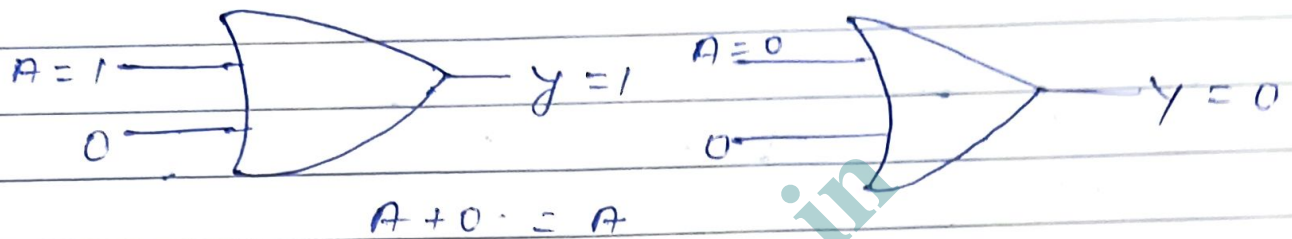 A = 1 y = 1 A = 0
0 0 Y = 0
A + 0 = A
in